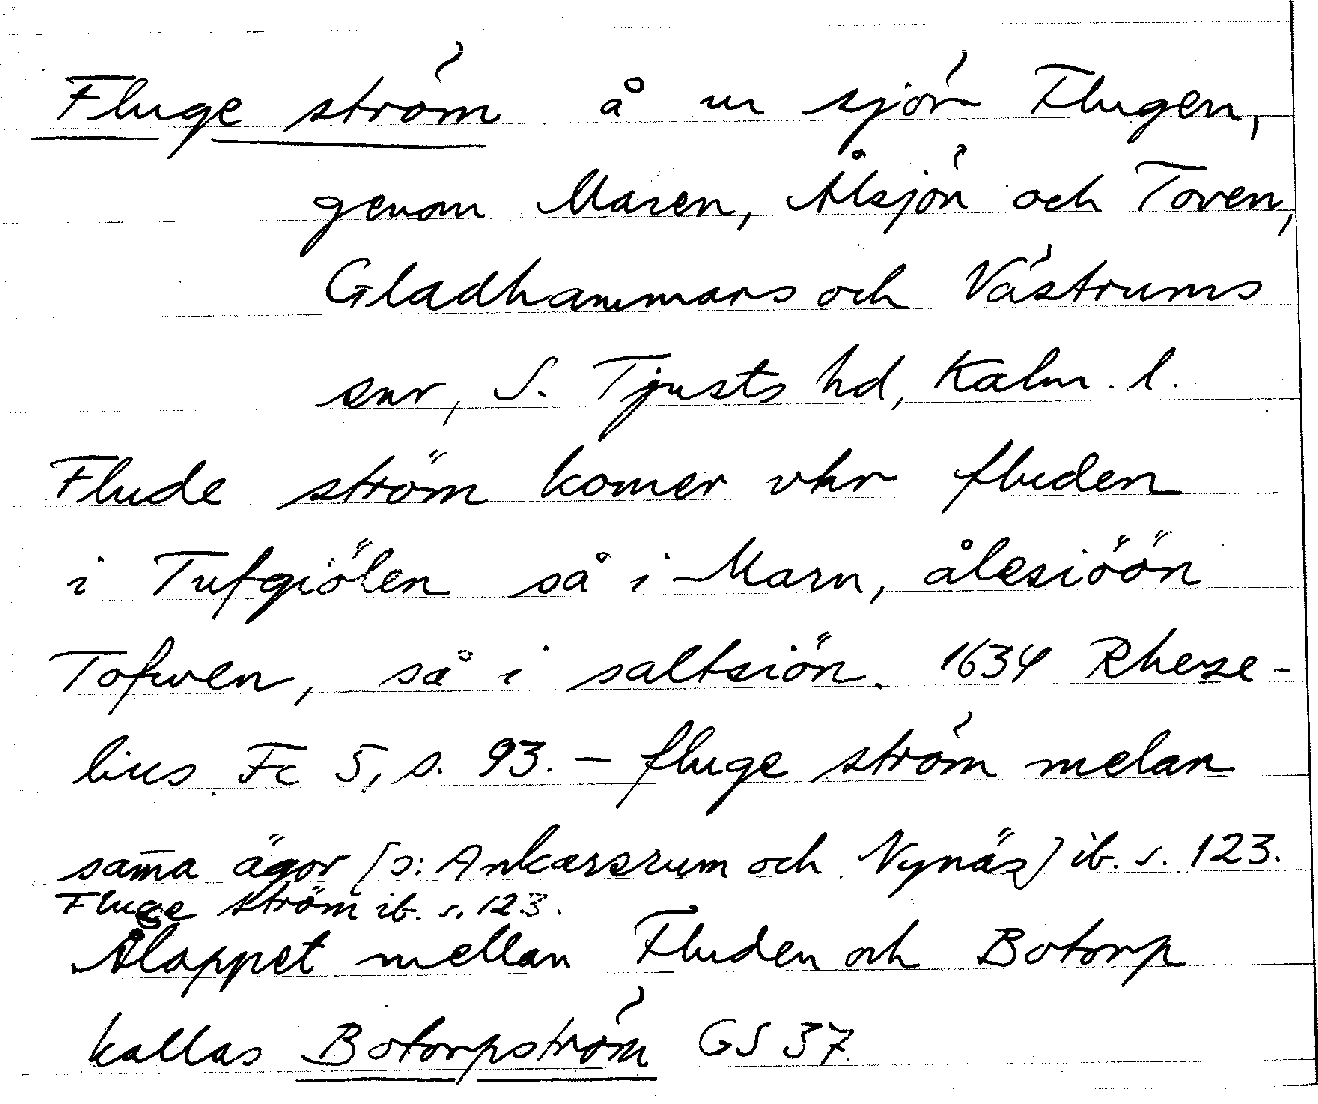 Fluge ström å ur sjön Flugen,
genom Maren, Ålsjön och Toven,
Gladhammars och Västrums
snr, S. Tjusts hd, Kalm. l.
Flude ström komer vhr fluden
i Tufgiölen så i Marn, ålesiöön
Tofwen, så i saltsiön. 1634 Rheze-
lius Fc 5, s. 93. – fluge ström melan
sam̄a ägor [ɔ: Ankarsrum och Nynäs] ib. s. 123.
Fluge ström ib. s. 123.
Åloppet mellan Fluden och Botorp
kallas Botorpström GS 37